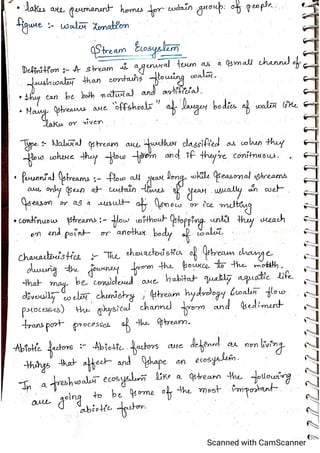 • lakes are permanant homes for certain group of people.
figure :- water Zonation
Stream Ecosystem
Definition :- A stream is a general term as a small channel of
freshwater than contains flowing water.
• They can be both natural and artificial.
• Many streams are "offshoots" of larger bodies of water like
lakes or river.
Type :- Natural stream are further classified as when they
flow where they flow form and if they're continuous.
• Perennial streams :- flow all year long while seasonal streams
are only seen at certain times of year usually in wet
season or as a result of snow or ice melting
• continuous streams :- flow without stopping until they reach
on end point or another body of water.
Characteristics :- The characteristics of stream change
during the journey from the source to the mouth,
that may be considered are habitat quality aquatic life
diversity water chemistry, stream hydrology (water flow
processes) the physical channel from and sediment
transport processes of the stream.
• Abiotic factors :- Abiotic factors are defined as non living
things that affect and shape an ecosystem.
In a freshwater ecosystem like a stream the following
are going to be some of the most important
abiotic factor.
Scanned with CamScanner